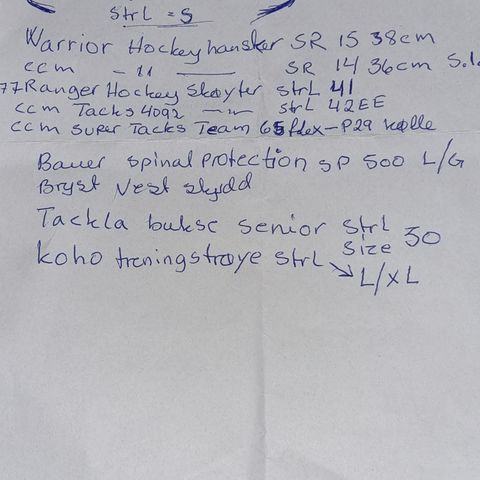 StrL = S
Warrior Hockeyhansker SR 15 38cm
ccm - 11 SR 14 36cm
77Ranger Hockey Skøyter StrL 41
ccm Tacks 4092 -"- StrL 42EE
ccm super Tacks Team 65flex-P29 kølle
Bauer spinal protection SP 500 L/G
Bryst Vest skydd
Tackla bukse senior Strl
Size 50
koho treningstrøye StrL
L/XL